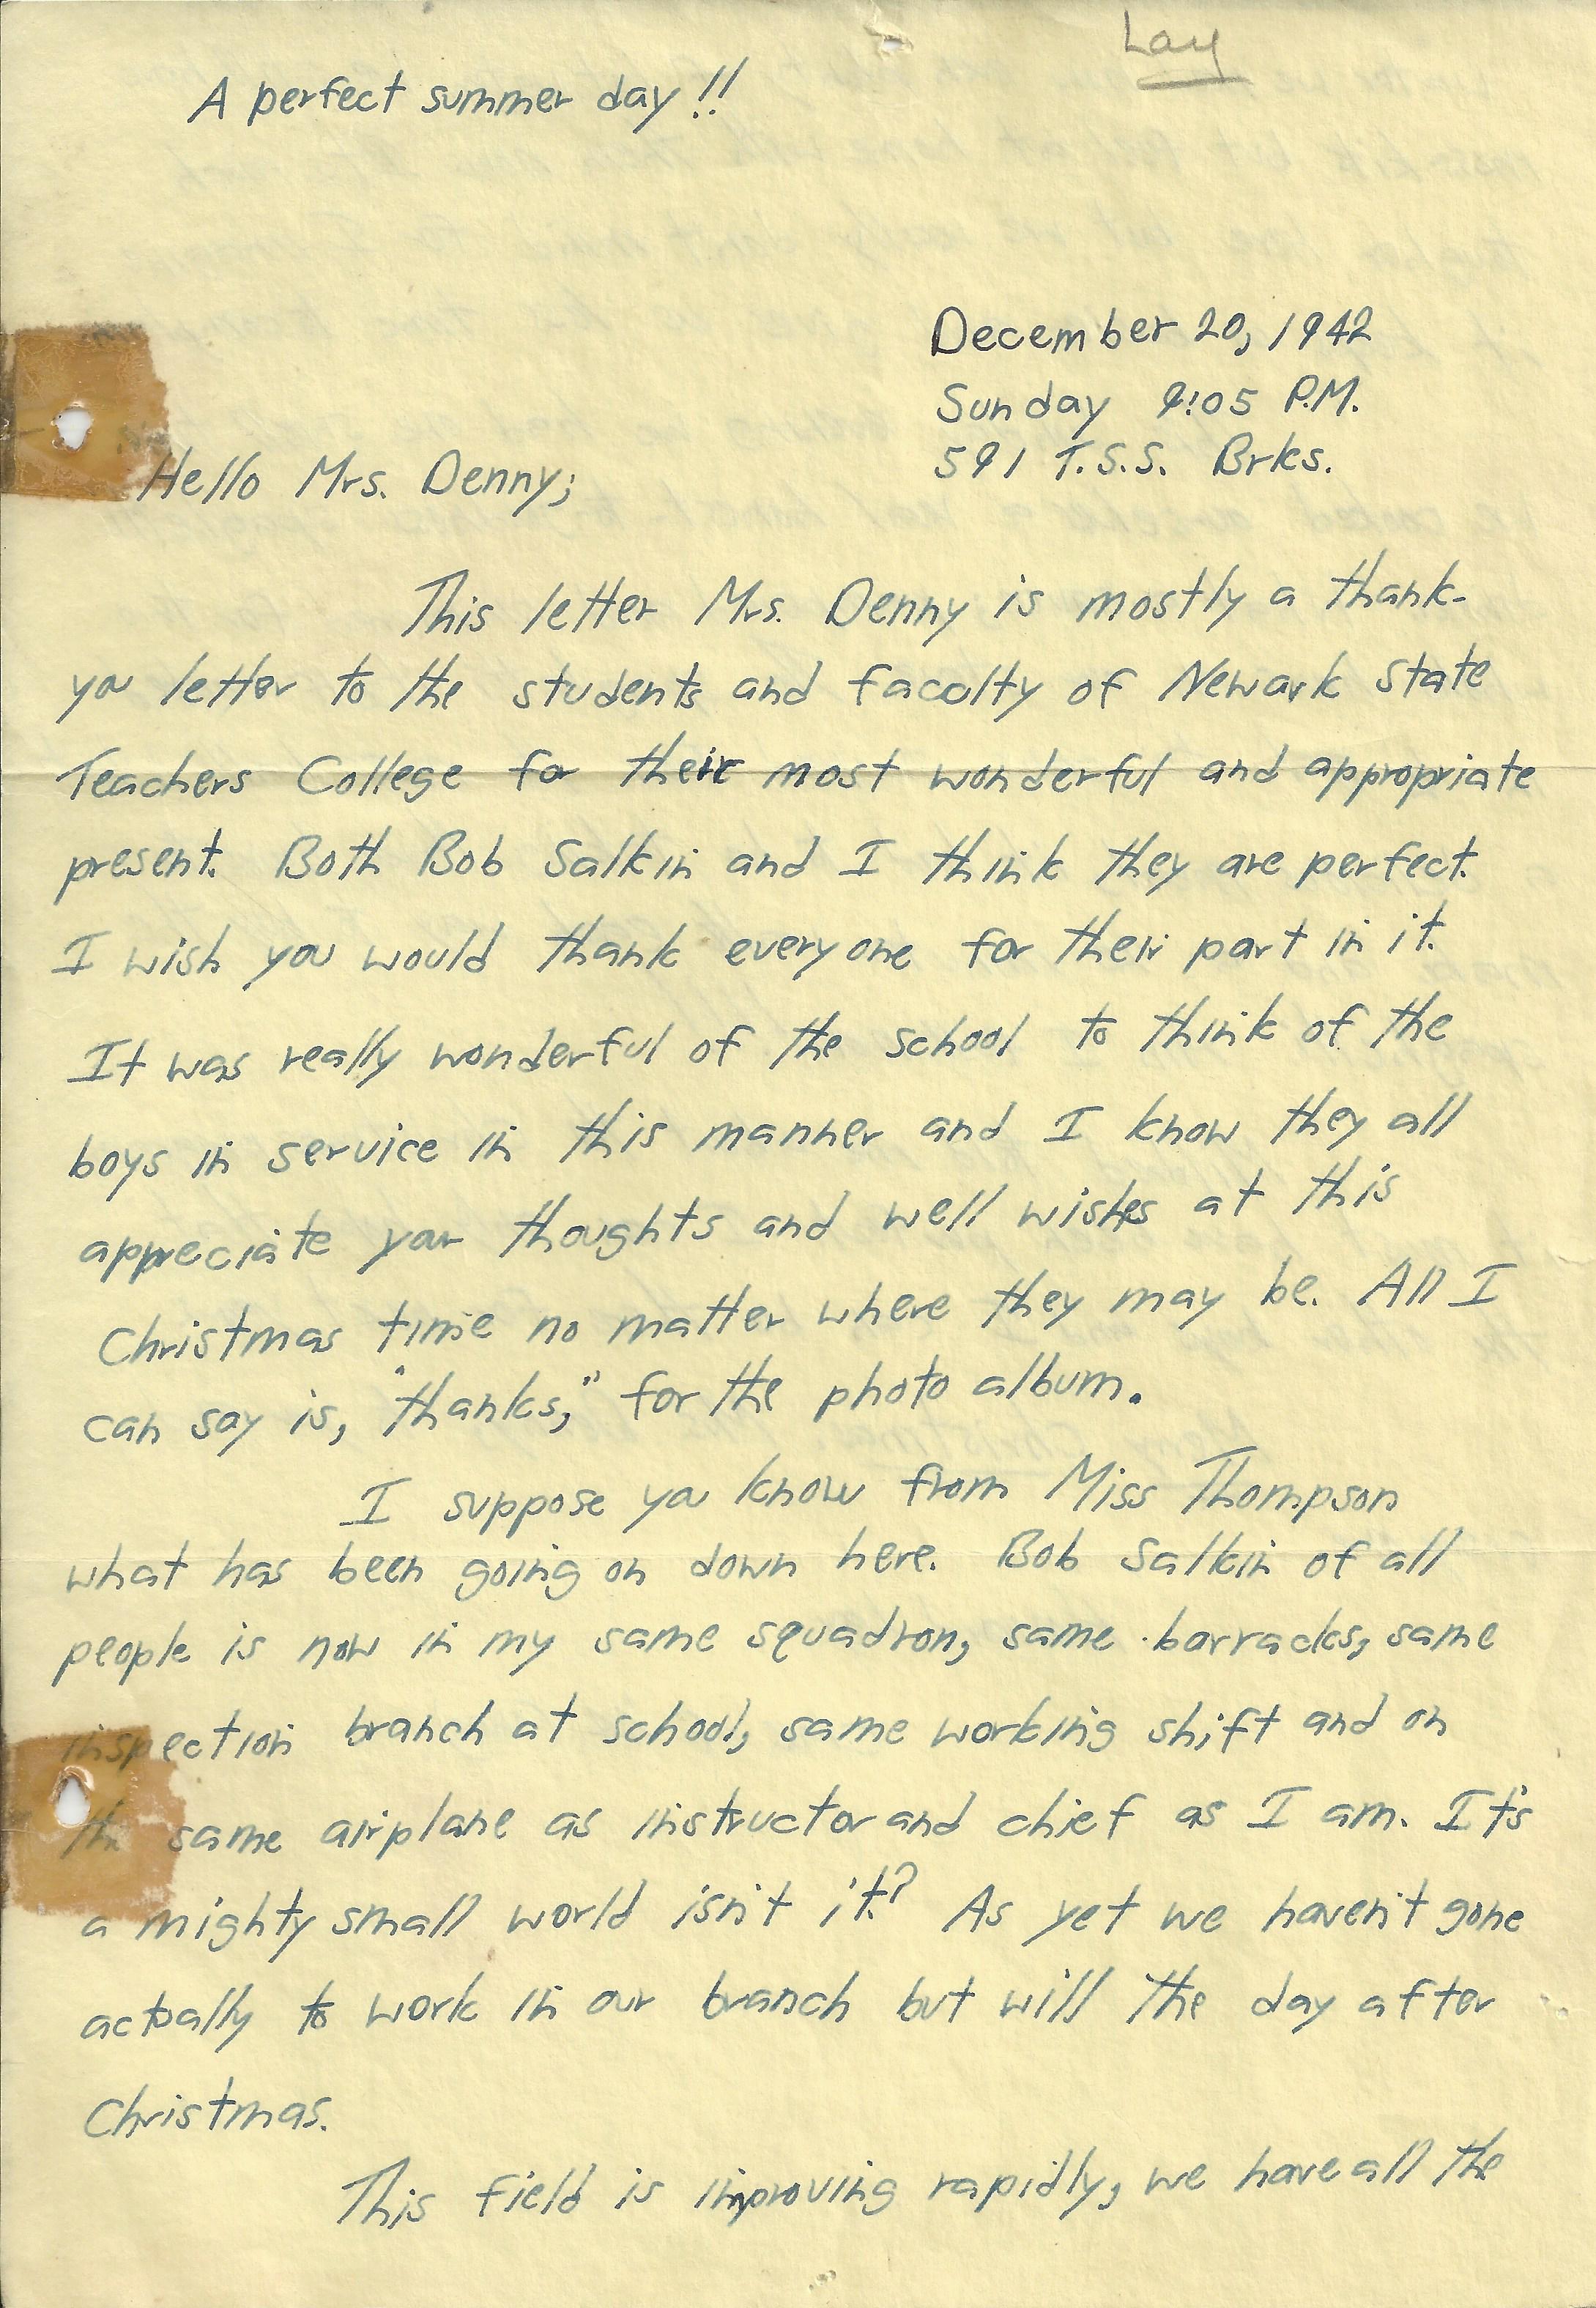 Lay
A perfect summer day!!
December 20, 1942
Sunday 9:05 P.M.
591 T.S.S. Brks.
Hello Mrs. Denny;
This letter Mrs. Denny is mostly a thank-
you letter to the students and faculty of Newark State
Teachers College for their most wonderful and appropriate
present. Both Bob Salkin and I think they are perfect.
I wish you would thank everyone for their part in it.
It was really wonderful of the school to think of the
boys in service in this manner and I know they all
appreciate your thoughts and well wishes at this
Christmas time no matter where they may be. All I
can say is, "thanks," for the photo album.
I suppose you know from Miss Thompson
what has been going on down here. Bob Salkin of all
people is now in my same squadron, same barracks, same
inspection branch at school, same working shift and on
the same airplane as instructor and chief as I am. It's
a mighty small world isn't it? As yet we haven't gone
actually to work in our branch but will the day after
Christmas.
This field is improving rapidly, we have all the